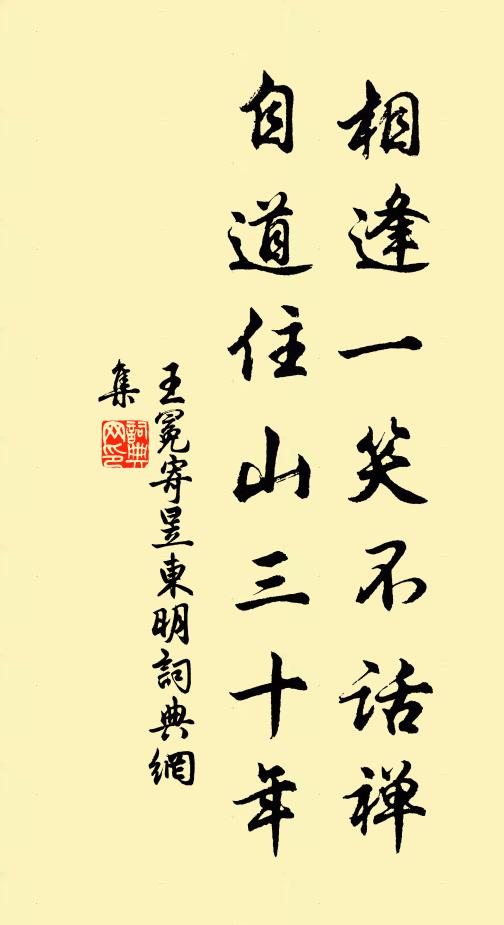 相逢一笑不话禅
自道住山三十年
王冕寄昱東明詞典網
集
詞典
网印